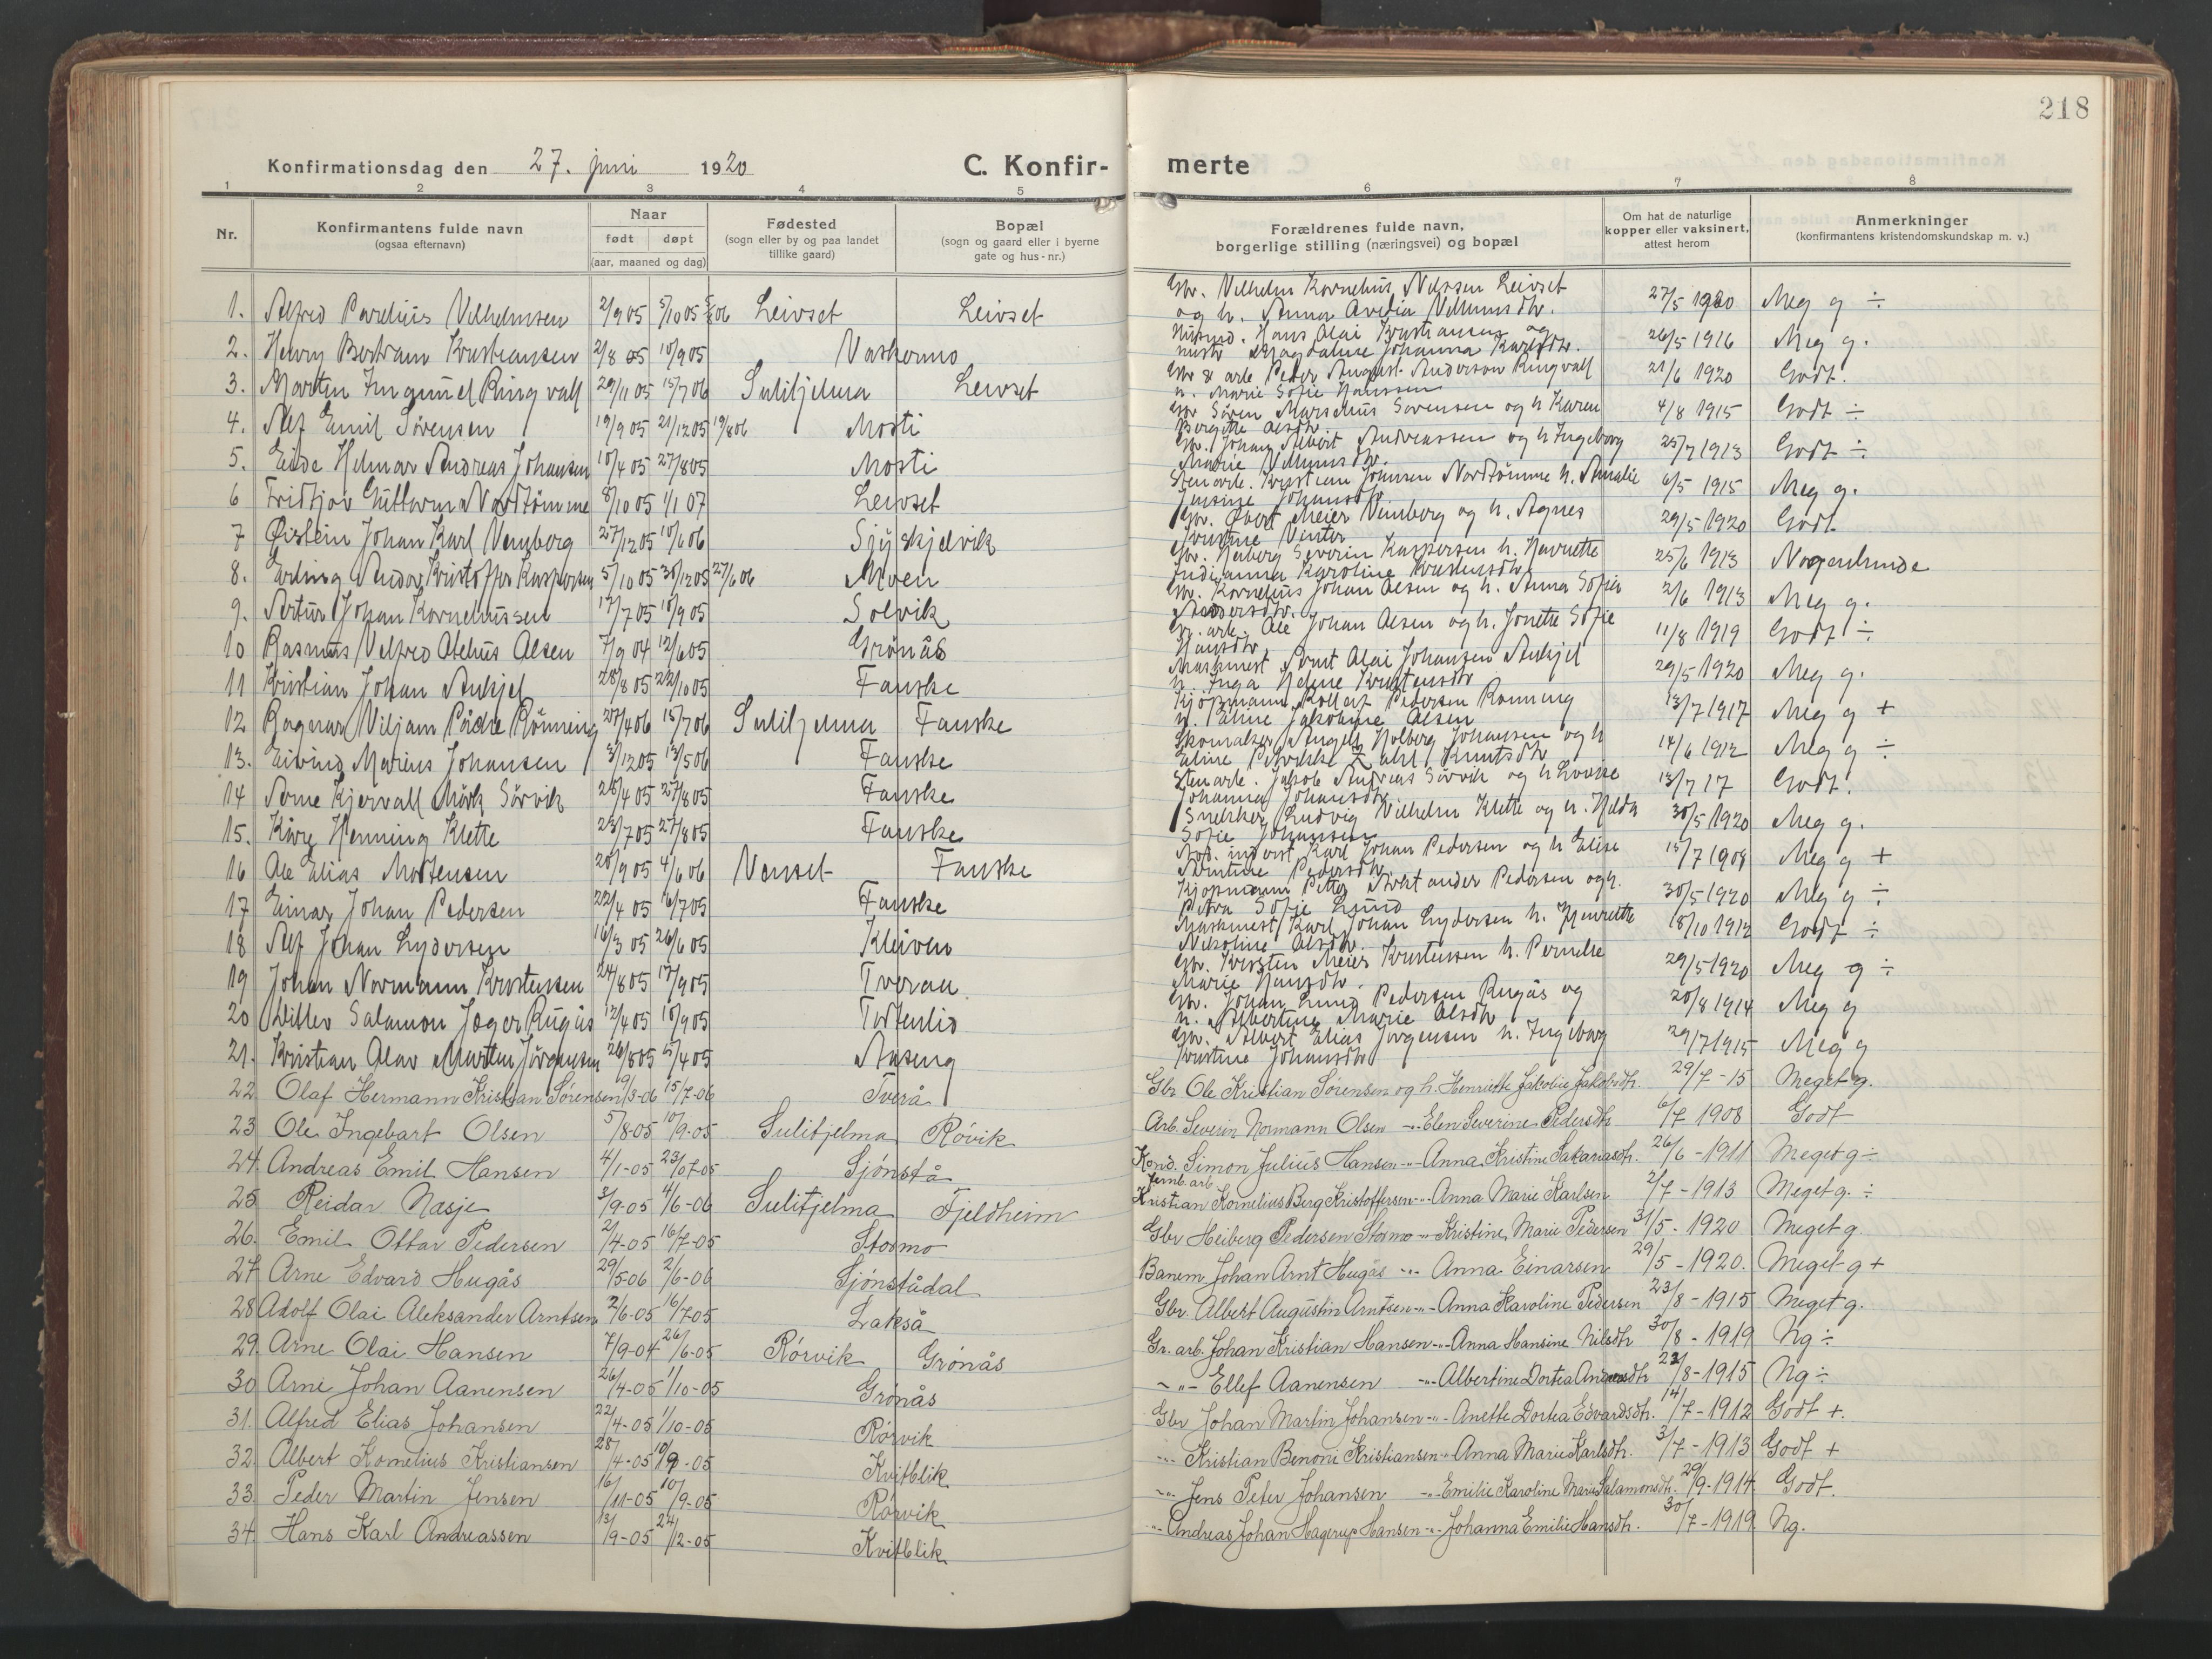 218
Konfirmationsdag den 27. juni 1920
C. Konfir-
merte
1 2 3 4 5 6 7 8
Nr.
Konfirmantens fulde navn
(ogsaa efternavn)
Naar
født døpt
(aar, maaned og dag)
Fødested
(sogn eller by og paa landet
tillike gaard)
Bopæl
(sogn og gaard eller i byerne
gate og hus-nr.)
Forældrenes fulde navn,
borgerlige stilling (næringsvei) og bopæl
Om hat de naturlige
kopper eller vaksinert,
attest herom
Anmerkninger
(konfirmantens kristendomskundskap m. v.)
1. Alfred Parelius Vilhelmsen 2/9 05 5/10 05 Leivset Leivset Gbr. Vilhelm Kornelius Nilssen Leivset 27/5 1920 Meg g ÷
og h. Anna
2. Henry Bertram Kristiansen 2/8 05 10/9 05 Husmd. Hans Olai Kristiansen og 26/5 1916 Meg g.
hustr Magdaline Johanna Karlsdtr.
3. Morten Ingemel Ringvall 29/11 05 15/7 06 Sulitjelma Leivset Gbr & arb Peder August Anderson Ringvall 21/6 1920 Godt.
h. Marie Sofie Hanssen
4. Alf Emil Sørensen 19/9 05 21/12 05 19/8 06 Mosti Gbr Søren Marselius Sørensen og h Karen 4/8 1915 Godt ÷
Bergitte Olsdtr.
5. Eide Helmar Andreas Johansen 10/4 05 27/8 05 Mosti Gbr. Johan Albert Andreassen og h Ingeborg 25/7 1913 Godt ÷
Marie
6 Fridtjov Guttorm Nordtømme 8/10 05 1/1 07 Leivset Stenarb. Kristian Johnsen Nordtømme h. Amalie 6/5 1915 Meg g.
Jensine Johansdtr.
7 Øistein Johan Karl Venberg 27/12 05 10/6 06 Gbr. Meier Venberg og h. Agnes 29/5 1920 Godt
Kristine Vinter
8. Erling Andor Kristoffer Kaspersen 5/10 05 30/12 05 27/6 06 Moen Gbr. Heiberg Severin Kaspersen h. Henriette 25/6 1913 Nogenlunde
Indianna Karoline Kristensdtr
9. Artur Johan Korneliussen 17/7 05 10/9 05 Solvik Gbr. Kornelius Johan Olsen og h. Anna Sofia 2/6 1913 Meg g.
Andersdtr.
10 Rasmus Vilfred Otelius Olsen 7/9 04 12/6 05 Grønås Gr. arb. Ole Johan Olsen og h. Jonette Sofie 11/8 1919 Godt ÷
Hansdtr.
11 Kristian Johan Ankjel 28/8 05 22/10 05 Fauske Maskinest. Arnt Olai Johansen Ankjel 29/5 1920 Meg g.
h. Inga Helene Kristensdtr
12 Ragnar Viljam Pådre Rønning 27/4 06 15/7 06 Sulitjelma Fauske Kjøpmann Rollelf Pedersen Rønning 13/7 1917 Meg g +
h. Paline Jakobine Olsen
13. Eivind Marius Johansen 3/12 05 13/5 06 Fauske Skomaker August Holberg Johansen og h 14/6 1912 Meg g ÷
Eline Knutsdtr
14 Arne Kjervall Mørk Sørvik 26/4 05 27/8 05 Fauske Stenarb. Jakob Andreas Sørvik og h Lovise 13/7 17 Godt.
Johanna Johansdtr
15. Kåre Henning Klette 23/7 05 27/8 05 Fauske Snekker Ludvig Vilhelm Klette og h. Hilda 30/5 1920 Meg g.
Sofie Johansen
16 Ole Elias Mortensen 20/9 05 4/6 06 Venset Fauske Karl Johan Pedersen og h Elise 15/7 1908 Meg g +
Pedersdtr
17 Einar Johan Pedersen 22/4 05 16/7 05 Fauske Kjøpmann Petter Pedersen og h. 30/5 1920 Meg g ÷
Petra Sofie Lund
18 Alf Johan Lydersen 16/3 05 26/6 05 Kleiven Maskinest. Karl Johan Lydersen h. Henriette 18/10 1912 Godt ÷
Nikoline Olsdtr.
19 Johan Normann Kristensen 24/8 05 17/9 05 Tveraa Gbr. Kristen Meier Kristensen h. Pernille 29/5 1920 Meg g ÷
Marie Hansdtr.
20 Ditlev Salamon Jæger Rugås 12/4 05 10/9 05 Tortenlid Gbr. Johan Lund Pedersen Rugås og 20/8 1914 Meg g
h. Albertine Marie Olsdtr
21. Kristian Olav Morten Jørgensen 26/8 05 Aaseng Gbr. Albert Elias Jørgensen h. Ingeborg 29/7 1915 Meg g
Kristine Johansdtr
22 Olaf Hermann Kristian Sørensen 9/3-06 15/7-06 Tverå Gbr. Ole Kristian Sørensen og h. Henriette Jakobie Jakobsdtr. 29/7-15 Meget g.
23 Ole Ingebart Olsen 5/8-05 10/9-05 Sulitjelma Røvik Arb. Severin Normann Olsen -"- Elen Severine Pedersdtr 6/7 1908 Godt
24. Andreas Emil Hansen 4/1-05 23/07-05 Sjønstå Kond. Simon Julius Hansen -"- Anna Kristine Sakariasdtr. 26/6-1911 Meget g ÷
25 Reidar Nasje 3/9-05 4/6-06 Sulitjelma Fjeldheim Jernb. arb
Kristian Kornelius Berg Kristoffersen -"- Anna Marie Karlsen 2/7-1913 Meget g. ÷
26. Emil Ottar Pedersen 2/4-05 16/7-05 Stormo Gbr Heiberg Pedersen Stormo -"- Kristine Marie Pedersen 31/5-1920 Meget g.
27 Arne Edvard Hugås 29/5-06 2/6-06 Sjønstådal Banem Johan Arnt Hugås -"- Anna Einarsen 29/5-1920. Meget g +
28 Adolf Olai Aleksander Arntsen 2/6-05 16/7-05 Lakså Gbr. Albert Augustin Arntsen -"- Anna Karoline Pedersen 23/8-1915 Meget g.
29. Arne Olai Hansen 7/9-04 26/6-05 Rørvik Grønås Gr. arb. Johan Kristian Hansen -"- Anna Hansine Nilsdtr 30/8-1919 Ng ÷
30 Arne Johan Aanensen 26/4-05 1/10-05 Grønås -"- Ellef Aanensen -"- Albertine Dortea 23/8-1915 Ng ÷
31. Alfred Elias Johansen 22/4-05 1/10-05 Rørvik Gbr Johan Martin Johansen -"- Anette Dortea Edvardsdtr. 14/7-1912 Godt +.
32. Albert Kornelius Kristiansen 28/4-05 10/9-05 Kvitblik -"- Kristian Benoni Kristiansen -"- Anna Marie Karlsdtr. 3/7-1913 Godt +
33. Peder Martin Jensen 16/11-05 10/9-05 Rørvik -"- Jens Peter Johansen -"- Emilie Karoline Marie Salamonsdtr. 29/9-1914 Godt.
34. Hans Karl Andreassen 13/9-05 24/12-05 Kvitblik -"- Andreas Johan Hagerup Hansen -"- Johanna Emilie Hansdtr. 30/7-1919 Ng.